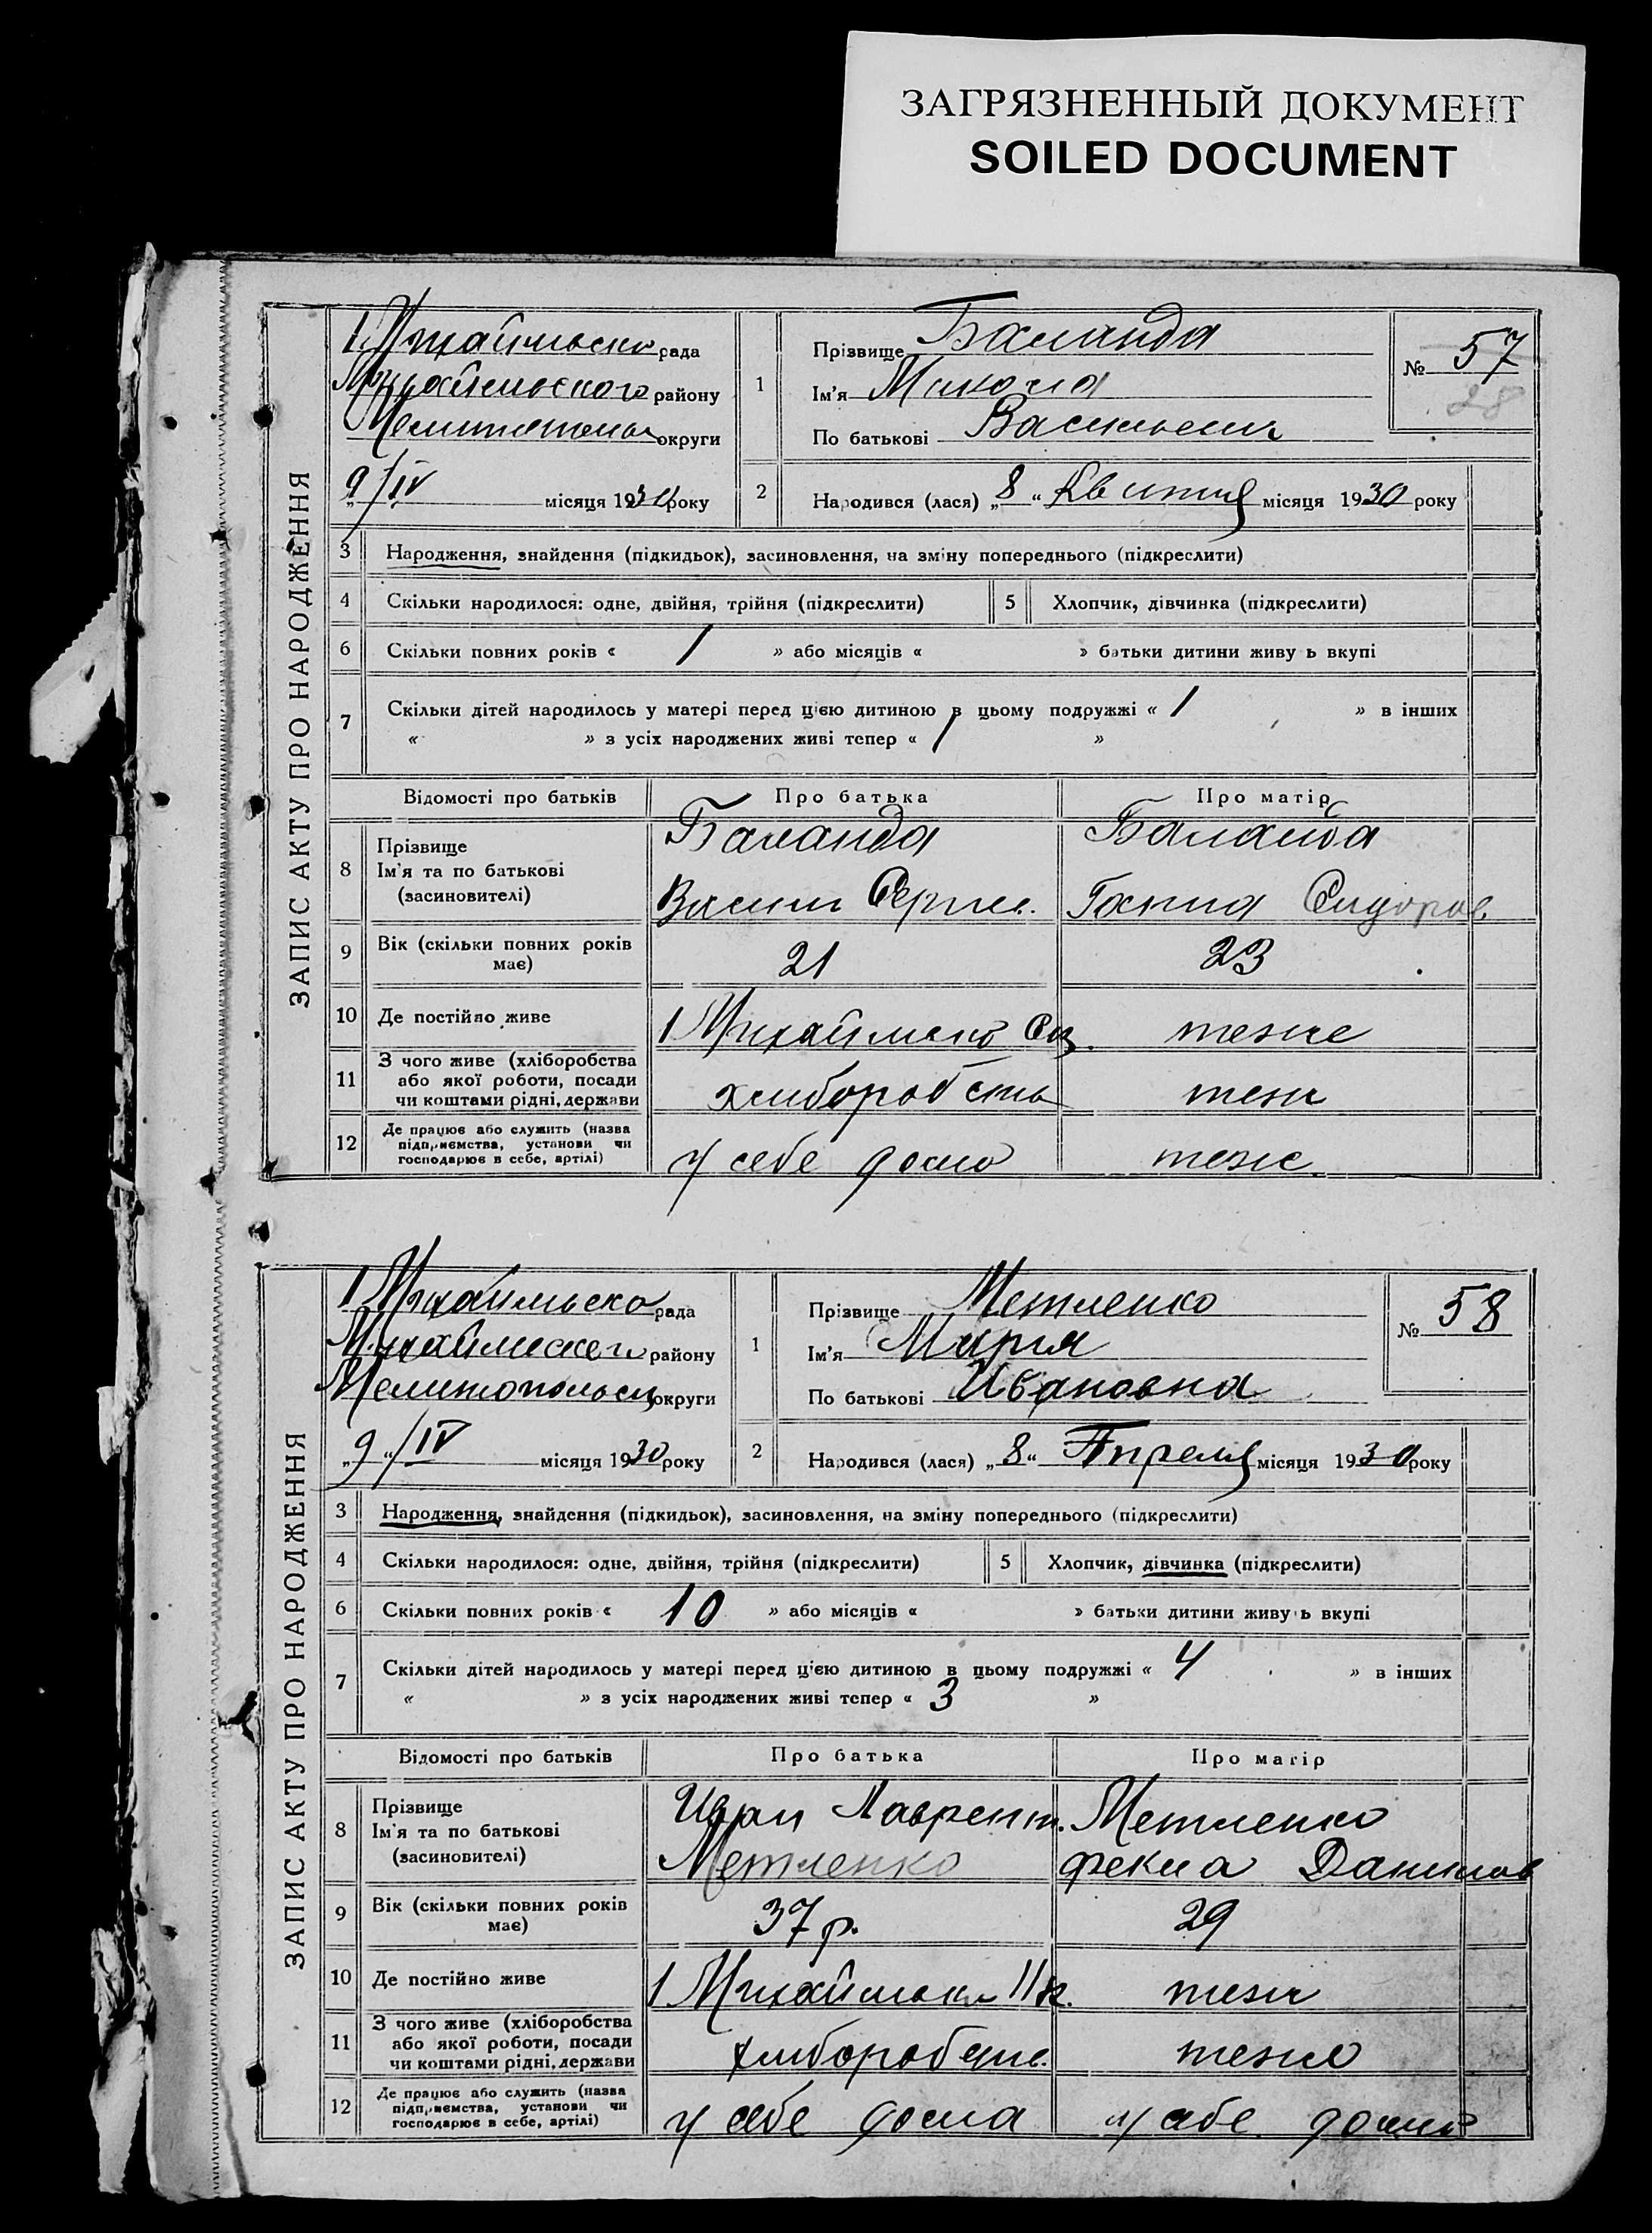 ЗАГРЯЗНЕННЫЙ ДОКУМЕНТ
SOILED DOCUMENT
ЗАПИС АКТУ ПРО НАРОДЖЕННЯ
рада
району
округи
9/IV місяця 1930 року
1
Прізвище Баланда
Ім'я Микола
По батькові Васильевич
№ 57
28
2
Народився (лася) „8“ місяця 1930 року
3 Народження, знайдення (підкидьок), засиновлення, на зміну попереднього (підкреслити)
4 Скільки народилося: одне, двійня, трійня (підкреслити) 5 Хлопчик, дівчинка (підкреслити)
6 Скільки повних років « 1 » або місяців « » батьки дитини живуть вкупі
7 Скільки дітей народилось у матері перед цією дитиною в цьому подружжі « 1 » в інших
« » з усіх народжених живі тепер « 1 »
Відомості про батьків Про батька Про матір
8 Прізвище Ім'я та по батькові (засновителі)
Баланда Баланда
Василь Серги. Ганна Сидоров
9 Вік (скільки повних років має) 21 23
10 Де постійно живе 1 Михайлівка теже
11 З чого живе (хліборобства або якої роботи, посади чи коштами рідні, держави
хлибороб теж
12 Де працює або служить (назва підприємства, установи чи господарює в себе, артілі)
у себе дома теже.
ЗАПИС АКТУ ПРО НАРОДЖЕННЯ
1 Михайльско рада
району
Мелитопольск округи
„9“/IV місяця 1930 року
1
Прізвище Метленко
Ім'я Мария
По батькові Ивановна
№ 58
2
Народився (лася) „8“ Апреля місяця 1930 року
3 Народження, знайдення (підкидьок), засиновлення, на зміну попереднього (підкреслити)
4 Скільки народилося: одне, двійня, трійня (підкреслити) 5 Хлопчик, дівчинка (підкреслити)
6 Скільки повних років « 10 » або місяців « » батьки дитини живуть вкупі
7 Скільки дітей народилось у матері перед цією дитиною в цьому подружжі « 4 » в інших
« » з усіх народжених живі тепер « 3 »
Відомості про батьків Про батька Про матір
8 Прізвище Ім'я та по батькові (засиновителі)
Иван Лаврент. Метленко
Метленко Фекла Данилов
9 Вік (скільки повних років має) 37 р. 29
10 Де постійно живе теж
11 З чого живе (хліборобства або якої роботи, посади чи коштами рідні, держави
теже
12 Де працює або служить (назва підприємства, установи чи господарює в себе, артілі)
у себе дома у себе дома